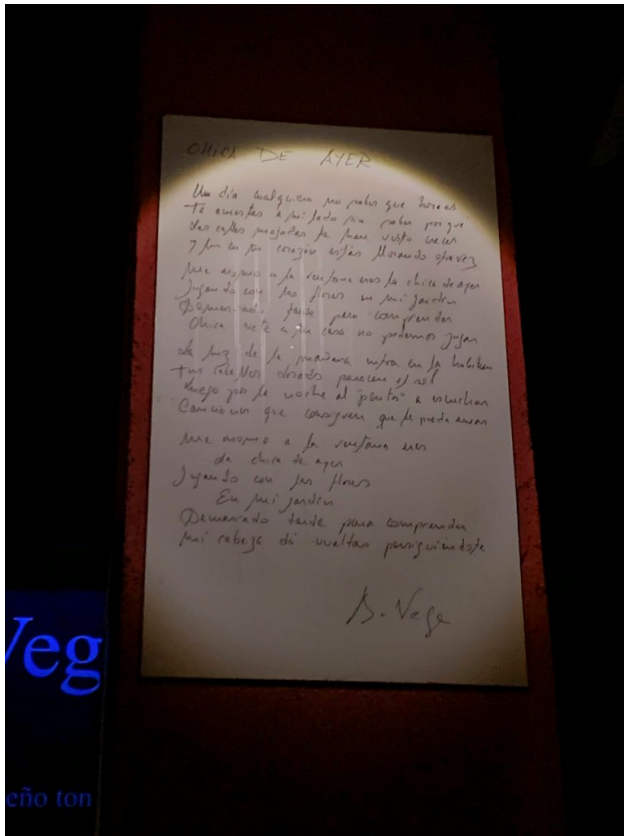 CHICA DE AYER
Un día cualquiera no sabes que hora es
Te acuestas a mi lado sin saber por qué
Las calles mojadas te han visto crecer
Y tú en tu corazón estás llorando otra vez
Me asomo a la ventana eres la chica de ayer
Jugando con las flores en mi jardín
Demasiado tarde para comprender
Chica vete a tu casa no podemos jugar
La luz de la mañana entra en la habitación
Tus cabellos dorados parecen el sol
Luego por la noche al "penta" a escuchar
Canciones que consiguen que te pueda amar
Me asomo a la ventana eres
La chica de ayer
Jugando con las flores
En mi jardín
Demasiado tarde para comprender
Mi cabeza dá vueltas persiguiéndote
A. Vega
Veg
eño ton